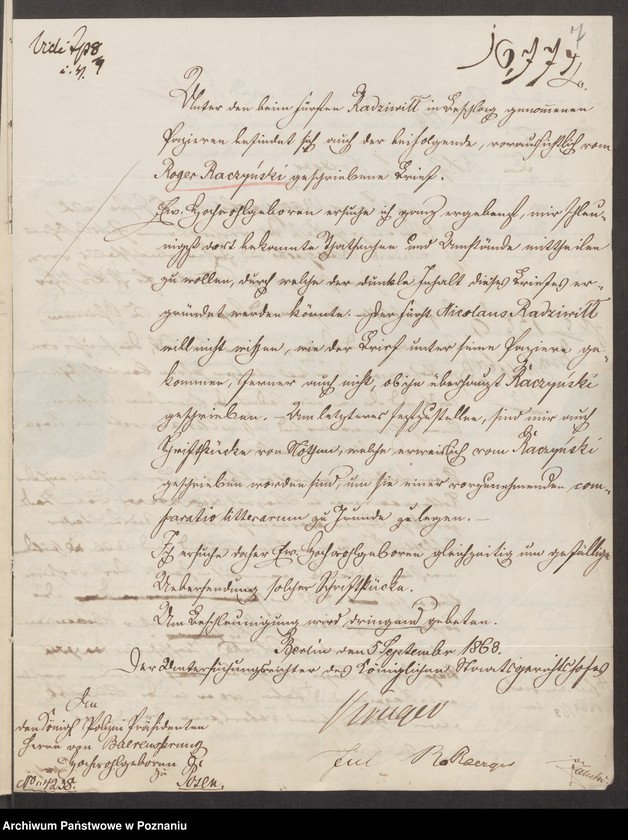 7
16,774.
Unter den beim Fürsten Radziwill in Beschlag genommenen
Papieren befindet sich auch der beifolgende, voraussichtlich vom
Roger Raczyński geschriebene Brief.
Ew. Hochwohlgeboren ersuche ich ganz ergebenst, mir schleu-
nigst dort bekannte Thatsachen und Umstände mittheilen
zu wollen, durch welche der dunkle Inhalt dieses Briefes er-
gründet werden könnte. – Der Fürst Nicolaus Radziwill
will nicht wissen, wie der Brief unter seine Papiere ge-
kommen, ferner auch nicht, ob ihn überhaupt Raczyński
geschrieben. – Um letzteres festzustellen, sind mir auch
Schriftstücke von Nöthen, welche erweislich vom Raczyński
geschrieben worden sind, um sie einer vorzunehmenden com-
paratio litterarum zu Grunde zu legen. –
Ich ersuche daher Ew. Hochwohlgeboren gleichzeitig um gefällige
Uebersendung solcher Schriftstücke.
Um Beschleunigung wird dringend gebeten.
Berlin den 5 September 1863.
Der Untersuchungsrichter des Königlichen Staatsgerichtshofes
Krüger
An
den Königl Polizei Präsidenten
Herrn von Baerensprung
Hochwohlgeboren
zu
Posen.
Archiwum Państwowe w Poznaniu